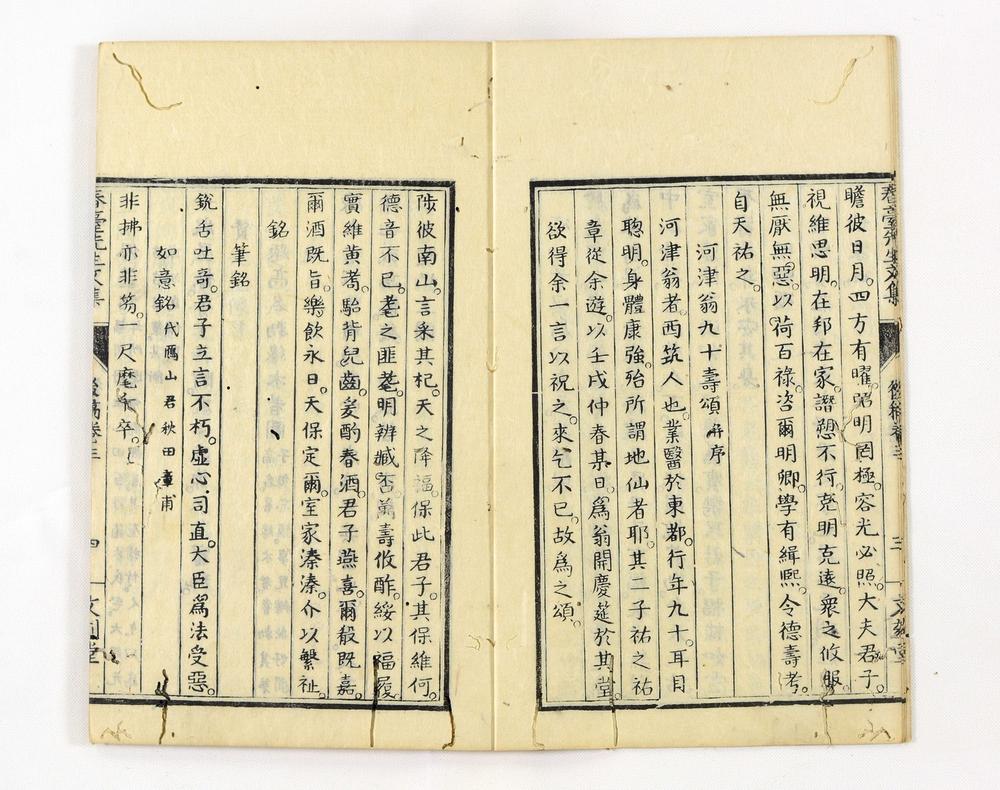 春臺先生文集
後稿卷三
三
瞻彼日月。四方有曜。弼明罔極。容光必照。大夫君子。
視維思明。在邦在家。譖愬不行。克明克遠。衆之攸服。
無厭無惡。以荷百祿。咨爾明卿。學有緝熙。令德壽考。
自天祐之。
河津翁九十壽頌 幷序
河津翁者西筑人也。業醫於東都。行年九十。耳目
聰明。身體康強。殆所謂地仙者耶。其二子祐之祐
章從余遊。以壬戌仲春某日爲翁開慶莚於其堂。
欲得余一言以祝之。來乞不已。故爲之頌。
陟彼南山。言采其杞。天之降福。保此君子。其保維何。
德音不已。耄之匪耄。明辨臧否。萬壽攸酢。綏以福履。
實維黃耇。駘背兒齒。爰酌春酒。君子燕喜。爾殽既嘉。
爾酒既旨。樂飲永日。天保定爾。室家溱溱。介以繁祉。
銘
筆銘
銳舌吐奇。君子立言。不朽。虛心司直。大臣爲法受惡。
如意銘 代鴈山君秋田
甫
非拂亦非笏。一尺麾
卒。
春臺先生文集
後稿卷三
四